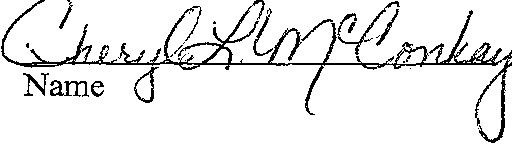 Cheryl L. McConkay
Name